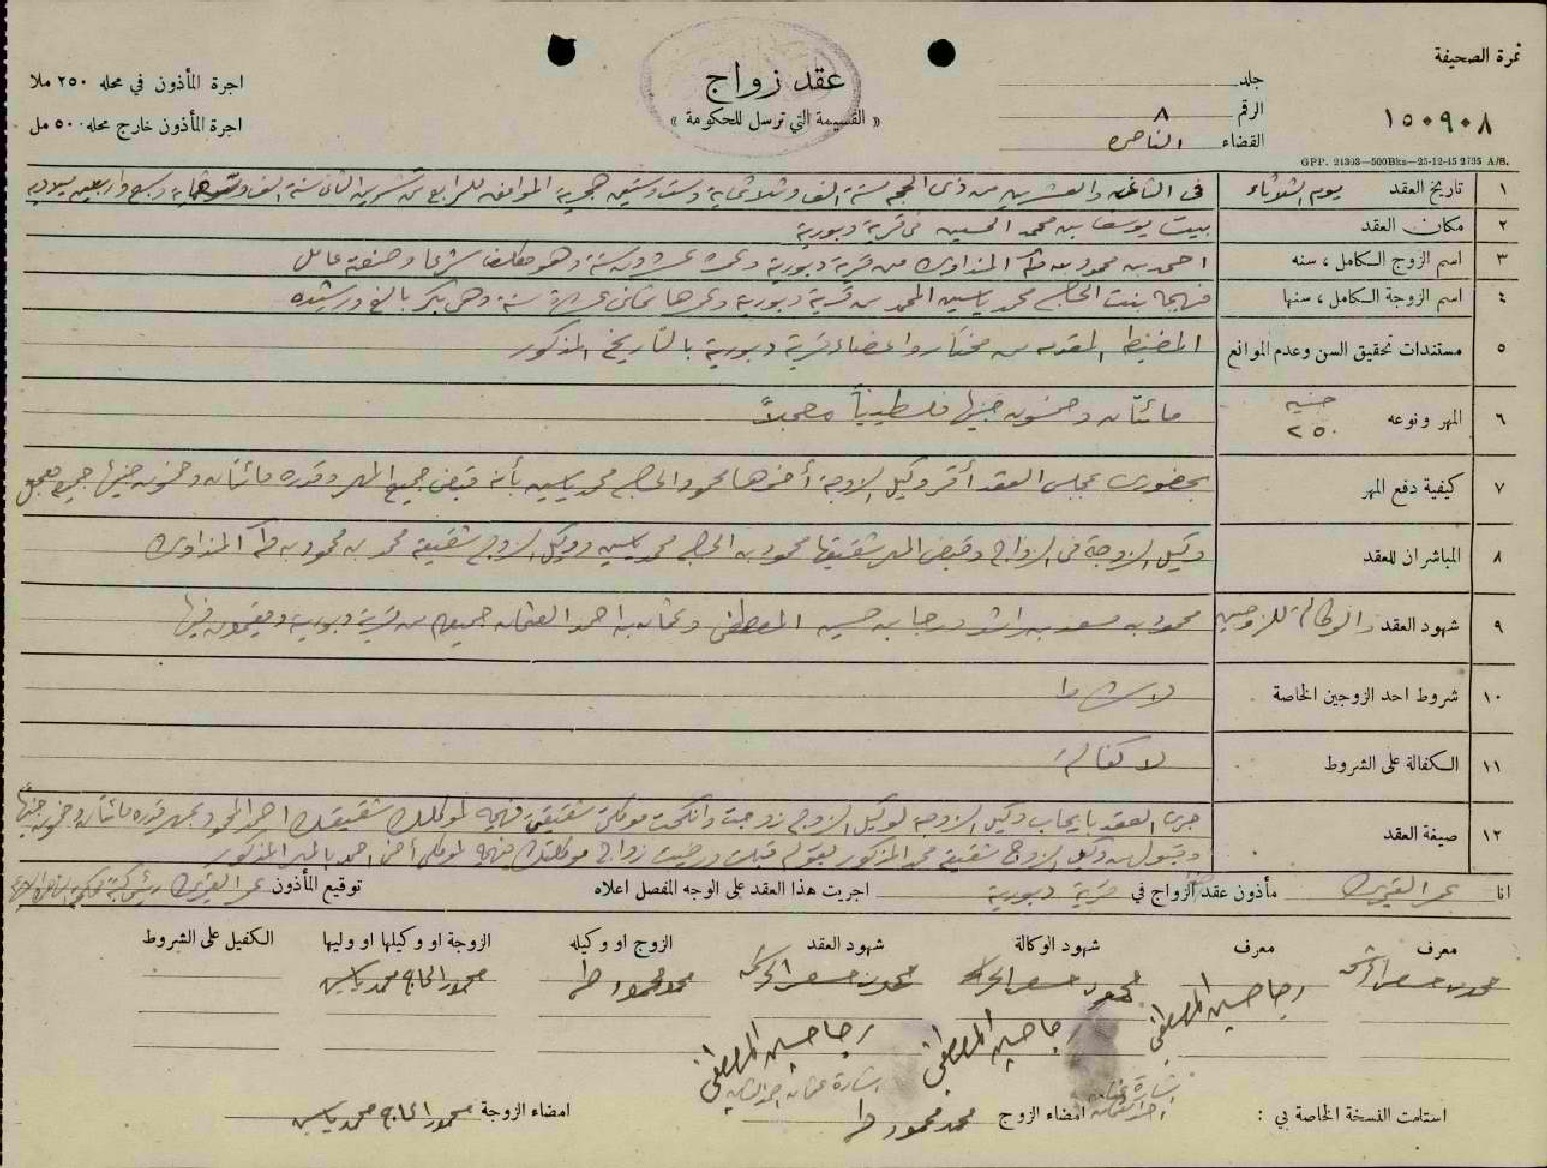 نمرة الصحيفة
١٥٠٩٠٨
جلد
الرقم ٨
القضاء الناصره
GPP. 21303—500Bks—25-12-45 2735 A/B.
عقد زواج
« القسيمة التي ترسل للحكومة »
اجرة المأذون في محله ٢٥٠ ملا
اجرة المأذون خارج محله ٥٠٠ مل
١ تاريخ العقد يوم الثلاثاء في الثاني والعشرين من ذي الحجه سنة الف وثلاثماية وست وستين هجرية الموافق للرابع من تشرين الثاني سنة الف وتسعماية وسبع واربعين ميلاديه
٢ مكان العقد بيت يوسف بن محمد الحسين في قرية دبورية
٣ اسم الزوج الكامل ، سنه احمد بن محمود بن طه المنداوي من قرية دبورية وعمره عشرون سنة وهو مكلف شرعا وصنعته عامل
٤ اسم الزوجة الكامل ، سنها فهيمه بنت الحاج محمد ياسين المحمد من قرية دبورية وعمرها ثماني عشرة سنة وهي بكر بالغ ورشيده
٥ مستندات تحقيق السن وعدم الموانع المضبطه المقدمه من مختار واعضاء قرية دبورية بالتاريخ المذكور
٦ المهر ونوعه جنيه ٢٥٠ مائتان وخمسون جنيها فلسطينياً معجلاً
٧ كيفية دفع المهر بحضوري بمجلس العقد أقر وكيل الزوجة أخوها محمود الحاج محمد ياسين بأنه قبض جميع المهر وقدره مائتان وخمسون جنيها جميعه معجل
٨ المباشران للعقد وكيل الزوجة في الزواج وقبض المهر شقيقها محمود بن الحاج محمد ياسين ووكيل الزوج شقيقه محمد بن محمود بن طه المنداوي
٩ شهود العقد والوكالة للزوجين محمود بن مسعد بن راشد ورجا بن حسين المصطفى وعثمان بن احمد العثمان جميعهم من قرية دبورية ومقيمون فيها
١٠ شروط احد الزوجين الخاصة لا شروط
١١ الكفالة على الشروط لا كفالة
١٢ صيغة العقد جرى العقد بايجاب وكيل الزوجه لوكيل الزوج زوجت وانكحت موكلتي شقيقتي فهيمه لموكلك شقيقك احمد المحمود بمهر قدره مائتان وخمسون جنيها
وبقبول من وكيل الزوج شقيقه محمد المذكور بقوله قبلت ورضيت زواج موكلتك فهيمه لموكلي أخي احمد بالمهر المذكور
انا عمر مأذون عقد الزواج في قرية دبورية اجريت هذا العقد على الوجه المفصل اعلاه توقيع المأذون عمر
معرف معرف شهود الوكالة شهود العقد الزوج او وكيله الزوجة او وكيلها او وليها الكفيل على الشروط
رجا حسين المصطفى محمد محمود طه محمود الحاج محمد ياسين
رجا حسين المصطفى رجا حسين المصطفى
اشارة عثمان احمد العثمان
استلمت النسخة الخاصة بي : امضاء الزوج محمد محمود طه امضاء الزوجة محمود الحاج محمد ياسين